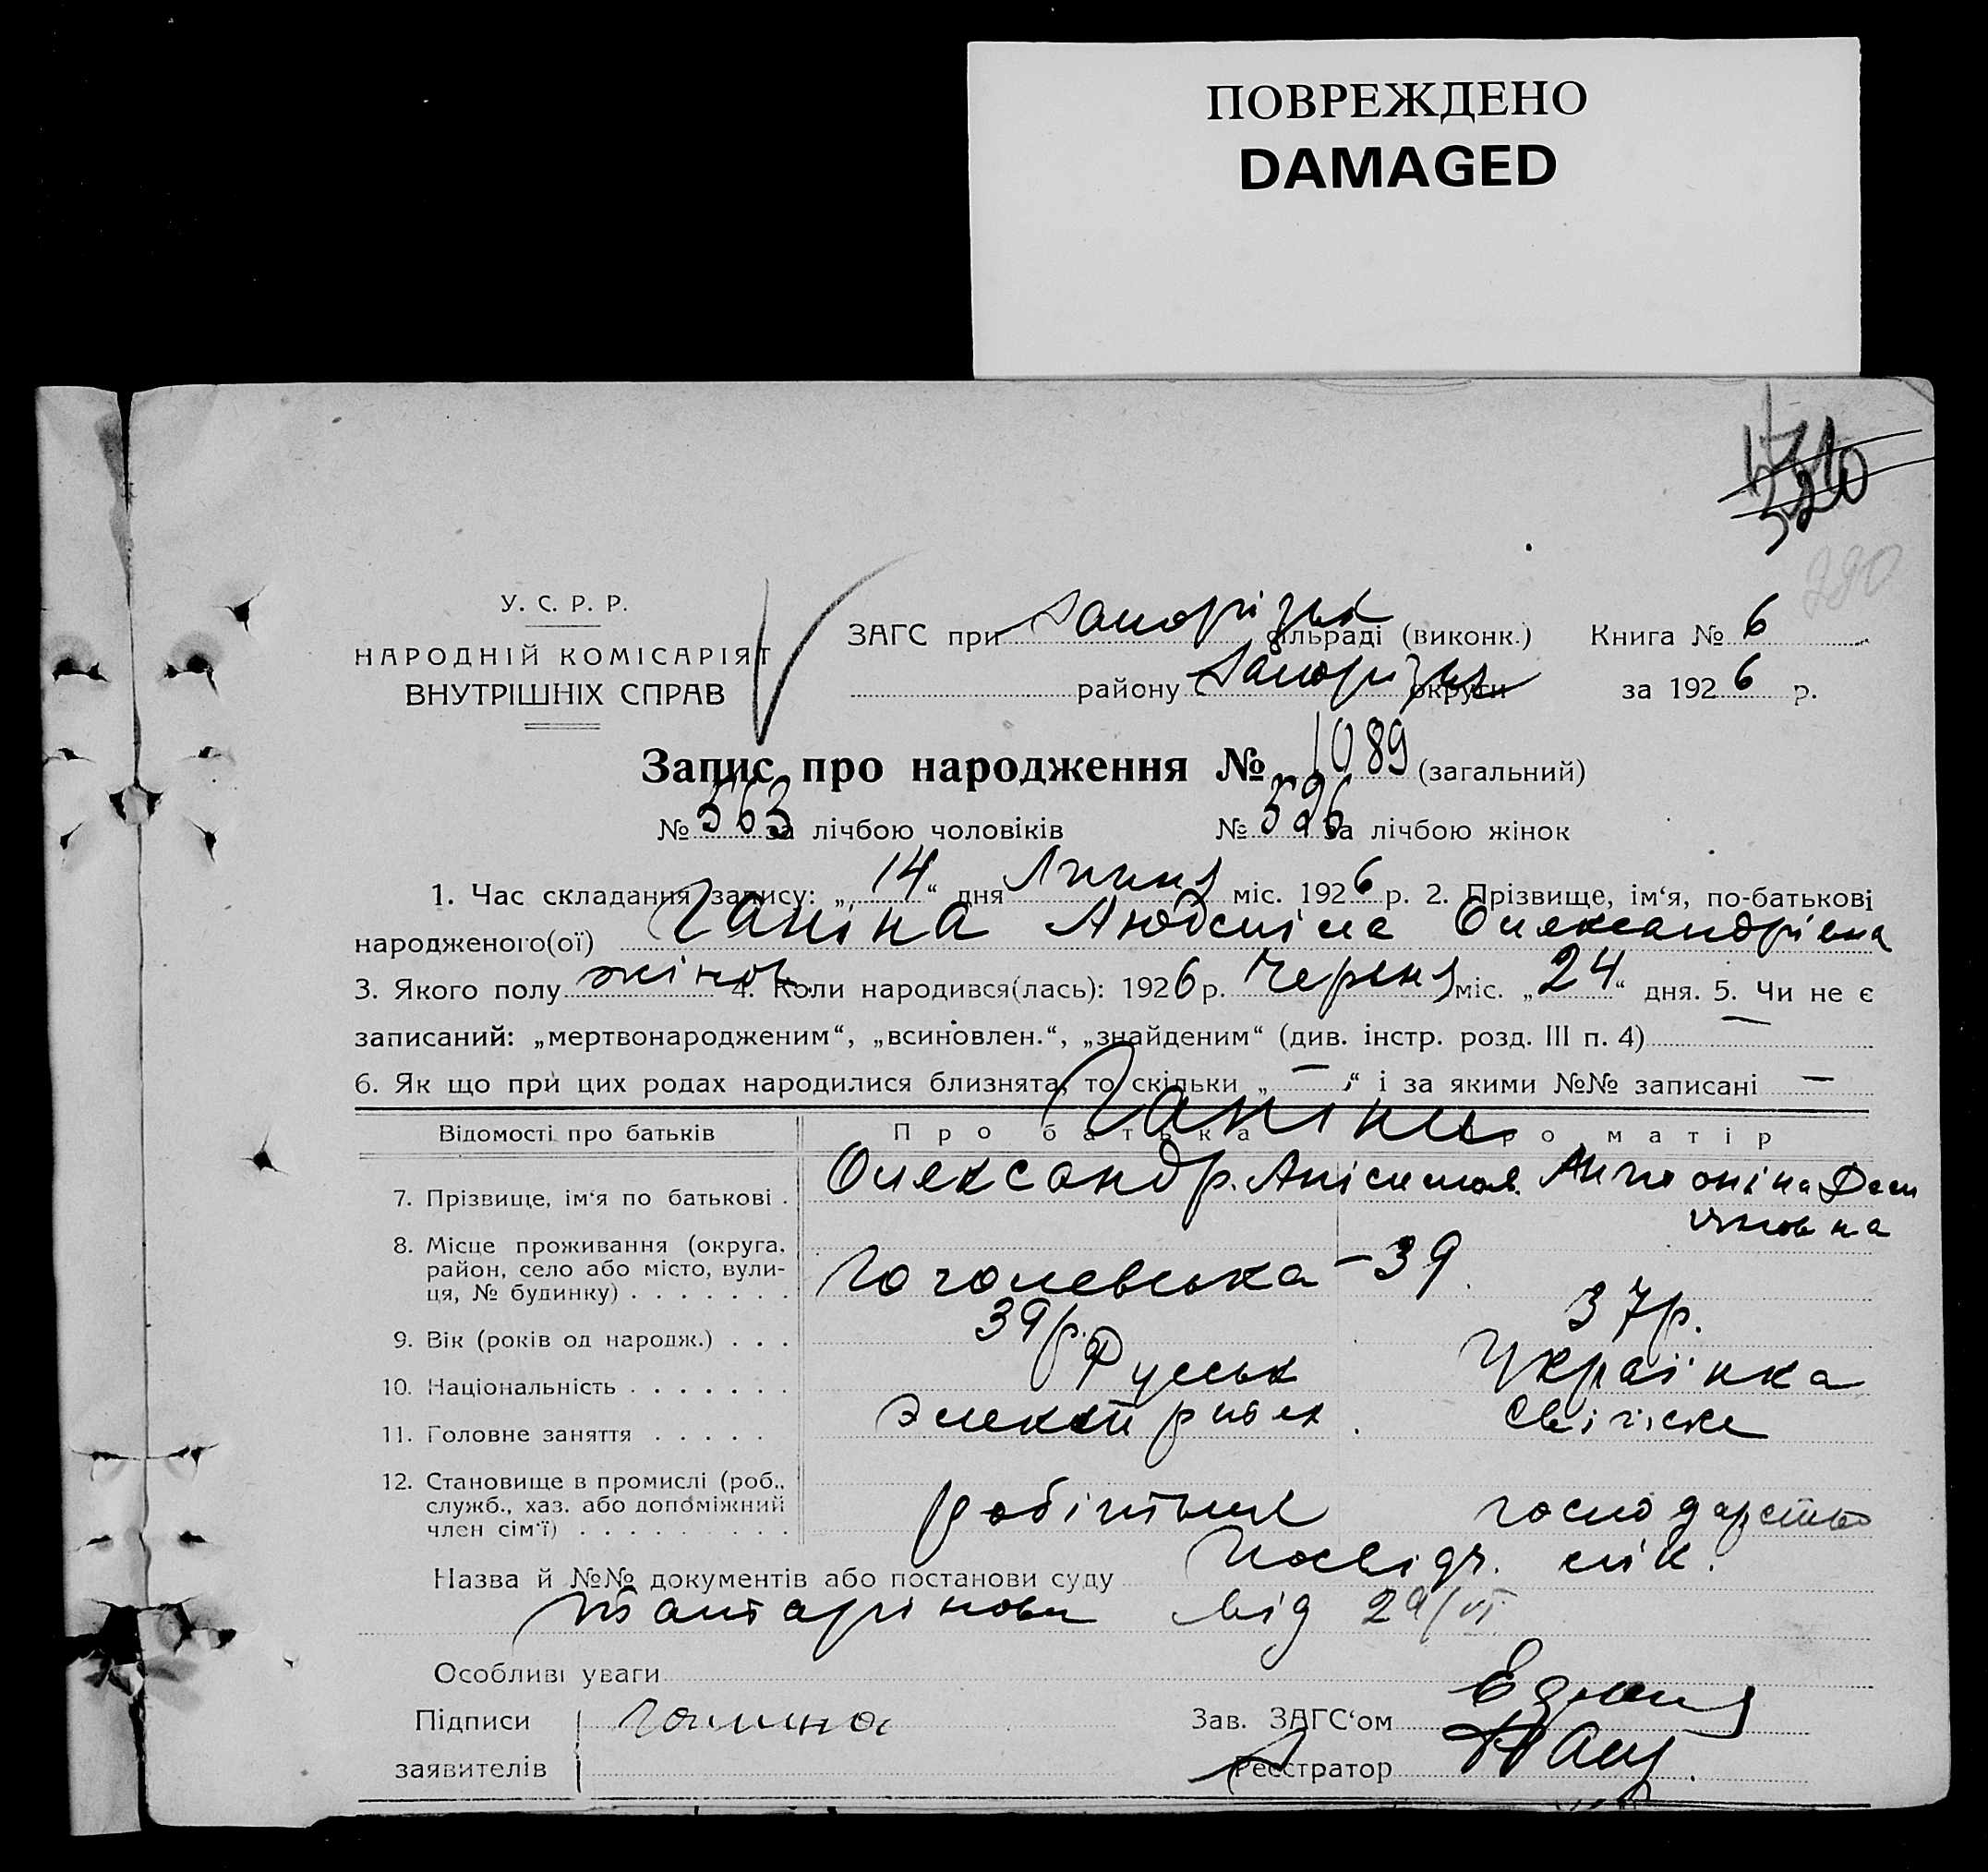 ПОВРЕЖДЕНО
DAMAGED
320
290
У. С. Р. Р.
НАРОДНІЙ КОМІСАРІЯТ
ВНУТРІШНІХ СПРАВ
ЗАГС при Запорізьк сільраді (виконк.) Книга № 6
району Запорізьк округи за 1926 р.
Запис про народження № 1089 (загальний)
№ 563 за лічбою чоловіків № 526 за лічбою жінок
1. Час складання запису: „ 14 “ дня Липня міс. 1926 р. 2. Прізвище, ім‘я, по-батькові
народженого(ої) Ганіна Людміла Олександрівна
3. Якого полу жіноч. 4. Коли народився(лась): 1926 р. Червня міс. „ 24 “ дня. 5. Чи не є
записаний: „мертвонародженим“, „всиновлен.“, „знайденим“ (див. інстр. розд. III п. 4) —
6. Як що при цих родах народилися близнята, то скільки „ — “ і за якими №№ записані —
Відомості про батьків Про батька Про матір
Ганіни
7. Прізвище, ім‘я по батькові . Олександр. Анісимов. Антоніна Дем
яновна
8. Місце проживання (округа,
район, село або місто, вули-
ця, № будинку) . . . . . . . Гоголевська – 39
9. Вік (років од народж.) . . . 39 р. 37 р.
10. Національність . . . . . . . Руськ Українка
11. Головне заняття . . . . . Электротех.
12. Становище в промислі (роб.,
служб., хаз. або допоміжний
член сім‘ї) . . . . . . . . . робітник господарство
Назва й №№ документів або постанови суду Посвідч. лік.
від 29/VI
Особливі уваги
Підписи Ганина Зав. ЗАГС‘ом
заявителів Реєстратор